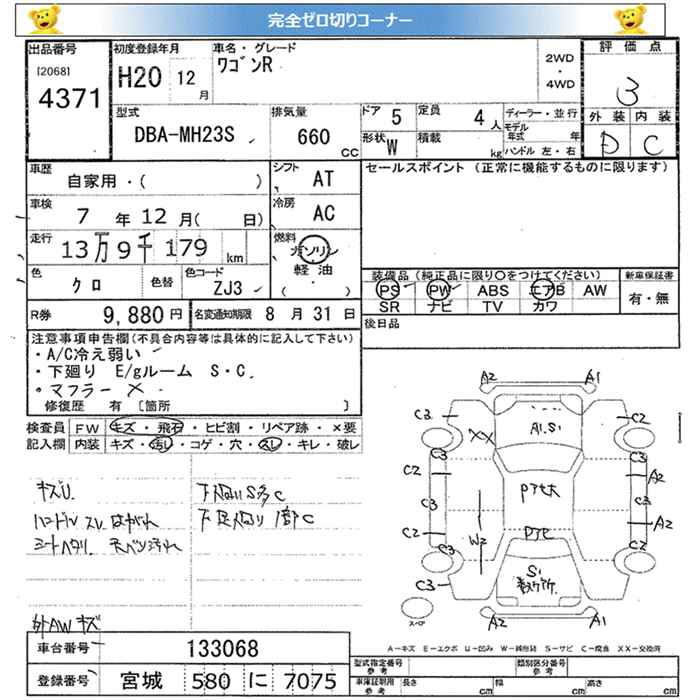 完全ゼロ切りコーナー
出品番号
[2068]
4371
初度登録年月
H20 12月
車名・グレード
ワゴンR
2WD
・
4WD
評価点
3
外装 内装
D C
型式
DBA-MH23S
排気量
660 CC
ドア 5
定員 4人
形状 W
積載 kg
ディーラー・並行
モデル年式 年
ハンドル 左・右
車歴
自家用・( )
シフト AT
セールスポイント (正常に機能するものに限ります)
車検
7年12月( 日)
冷房 AC
走行
13万9千179km
燃料
ガソリン
軽油
( ・ )
色
クロ
色替
色コード
ZJ3
装備品 (純正品に限り〇をつけてください)
新車保証書
PS PW ABS エアB AW
SR ナビ TV カワ
有・無
R券
9,880円
名変通知期限 8月31日
後日品
注意事項申告欄(不具合内容等は具体的に記入して下さい)
・A/C冷え弱い
・下廻り E/gルーム S・C.
・マフラー ×
修復歴 有 〔箇所 〕
検査員 FW キズ・飛石・ヒビ割・リペア跡・×要
記入欄 内装 キズ・汚レ・コゲ・穴・スレ・キレ・破レ
キズU.
ハンドルスレ はがれ
シートヘタリ. 天ベリ汚れ
下廻りS多C
下足廻り1部C
外AWキズ
A2 A1
C3 C2
XX
A1.S1
C3 C3
C2 A2
C3 C3
Pアセ大
C2 A2
W2
Pアセ
C3 C2
C3
S1
A2 A1
スペア
A－キズ E－エクボ U－凹み W－補修跡 S－サビ C－腐食 XX－交換済
車台番号 133068
登録番号 宮城 580 に 7075
型式指定番号
参考
類別区分番号
参考
車庫証明用
参考
長さ cm
幅 cm
高さ cm